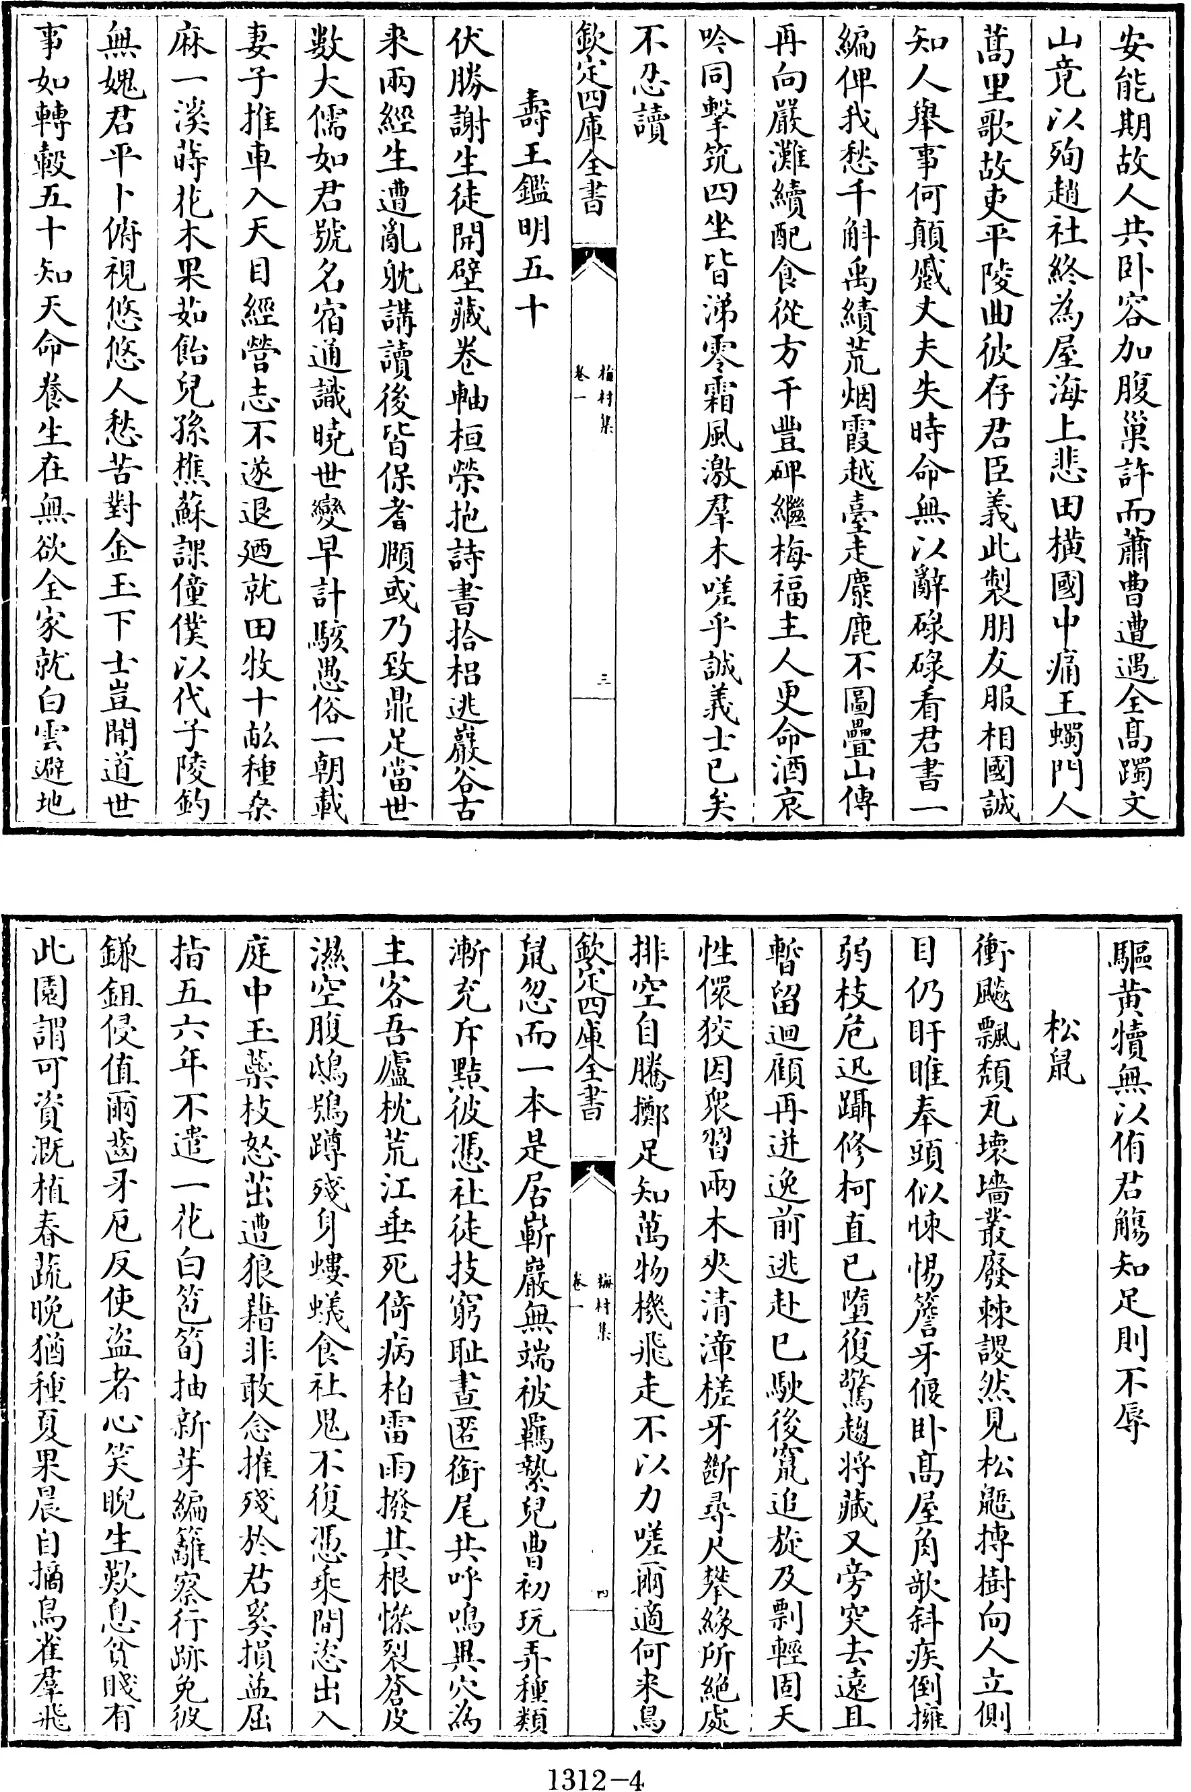 安能期故人共卧容加腹巢許而蕭曹遭遇全高躅文
山竟以殉趙社終為屋海上悲田橫國中痛王蠋門人
蒿里歌故吏平陵曲彼存君臣義此製朋友服相國誠
知人舉事何顛蹙丈夫失時命無以辭碌碌看君書一
編俾我愁千斛禹績荒烟霞越臺走麋鹿不圖疊山傳
再向嚴灘續配食從方干豐碑繼梅福主人更命酒哀
吟同擊筑四坐皆涕零霜風激羣木嗟乎誠義士已矣
不忍讀
欽定四庫全書
梅村集
卷一
三
壽王鑑明五十
伏勝謝生徒開壁藏卷軸桓榮抱詩書拾梠逃巖谷古
來兩經生遭亂躭講讀後皆保耆頤或乃致鼎足當世
數大儒如君號名宿通識曉世變早計駭愚俗一朝載
妻子推車入天目經營志不遂退廼就田牧十畝種桑
麻一溪蒔花木果茹飴兒孫樵蘇課僮僕以代子陵釣
無媿君平卜俯視悠悠人愁苦對金玉下士豈聞道世
事如轉轂五十知天命養生在無欲全家就白雲避地
驅黃犢無以侑君觴知足則不辱
松鼠
衝飈飄頹瓦壞墻叢廢棘謖然見松鼯搏樹向人立側
目仍盱睢奉頭似悚惕簷牙偃卧高屋角欹斜疾倒擁
弱枝危迅躡修柯直已墮復驚趨將藏又旁突去遠且
暫留迴顧再迸逸前逃赴已駛後竄追旋及剽輕固天
性儇狡因衆習兩木夾清漳槎牙斷尋尺攀緣所絕處
排空自騰擲足知萬物機飛走不以力嗟爾適何來鳥
欽定四庫全書
梅村集
卷一
四
鼠忽而一本是居嶄巖無端被羈縶兒曹初玩弄種類
漸充斥黠彼憑社徒技窮耻晝匿銜尾共呼鳴異穴為
主客吾廬枕荒江垂死倚病柏雷雨撥其根慘裂蒼皮
濕空腹鴟鴞蹲殘身螻蟻食社鬼不復憑乘間恣出入
庭中玉蘂枝怒茁遭狼藉非敢念摧殘於君奚損益屈
指五六年不遣一花白笣筍抽新芽編籬察行跡免彼
鎌鉏侵值爾齒牙厄反使盜者心笑睨生歎息貧賤有
此園謂可資溉植春蔬晚猶種夏果晨自摘鳥雀羣飛
1312-4